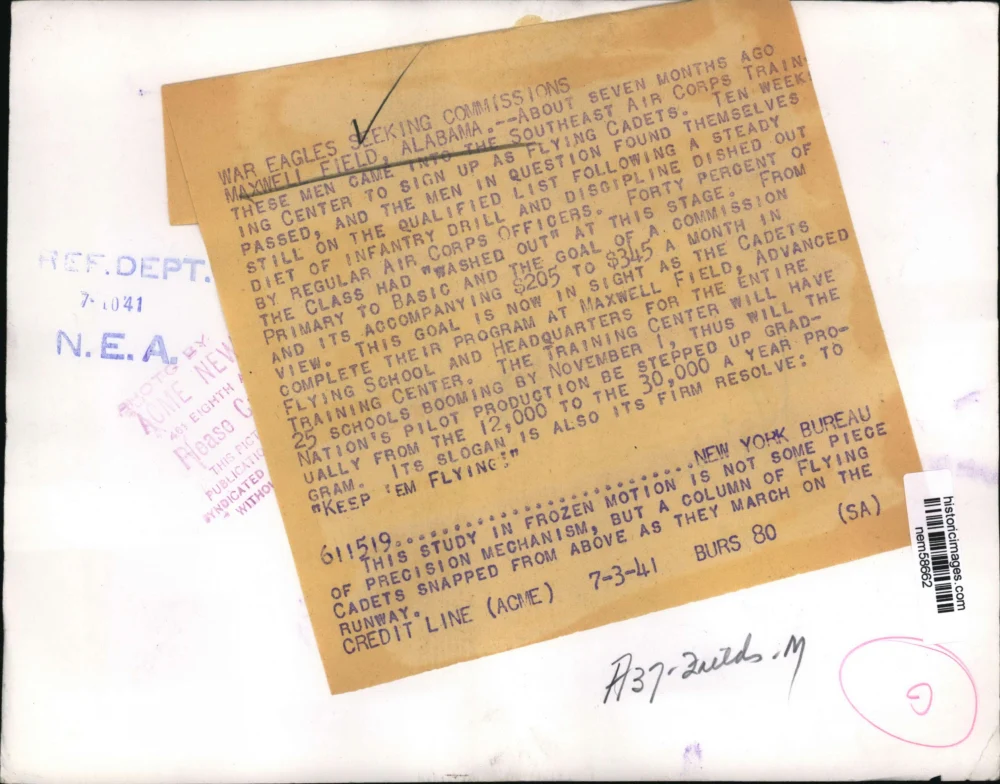 WAR EAGLES SEEKING COMMISSIONS
MAXWELL FIELD, ALABAMA.--ABOUT SEVEN MONTHS AGO
THESE MEN CAME INTO THE SOUTHEAST AIR CORPS TRAIN-
ING CENTER TO SIGN UP AS FLYING CADETS. TEN WEEKS
PASSED, AND THE MEN IN QUESTION FOUND THEMSELVES
STILL ON THE QUALIFIED LIST FOLLOWING A STEADY
DIET OF INFANTRY DRILL AND DISCIPLINE DISHED OUT
BY REGULAR AIR CORPS OFFICERS. FORTY PERCENT OF
THE CLASS HAD "WASHED OUT" AT THIS STAGE. FROM
PRIMARY TO BASIC AND THE GOAL OF A COMMISSION
AND ITS ACCOMPANYING $205 TO $345 A MONTH IN
VIEW. THIS GOAL IS NOW IN SIGHT AS THE CADETS
COMPLETE THEIR PROGRAM AT MAXWELL FIELD, ADVANCED
FLYING SCHOOL AND HEADQUARTERS FOR THE ENTIRE
TRAINING CENTER. THE TRAINING CENTER WILL HAVE
25 SCHOOLS BOOMING BY NOVEMBER 1, THUS WILL THE
NATION'S PILOT PRODUCTION BE STEPPED UP GRAD-
UALLY FROM THE 12,000 TO THE 30,000 A YEAR PRO-
GRAM. ITS SLOGAN IS ALSO ITS FIRM RESOLVE: TO
"KEEP 'EM FLYING!"
611519..............................NEW YORK BUREAU
THIS STUDY IN FROZEN MOTION IS NOT SOME PIECE
OF PRECISION MECHANISM, BUT A COLUMN OF FLYING
CADETS SNAPPED FROM ABOVE AS THEY MARCH ON THE
RUNWAY.
CREDIT LINE (ACME) 7-3-41 BURS 80 (SA)
REF. DEPT.
7-10 41
N.E.A.
PHOTO BY
ACME NEW
461 EIGHTH
Please C
THIS PICT
PUBLICATI
SYNDICATED
WITHO
historicimages.com
nem58662
A37-Fields-M